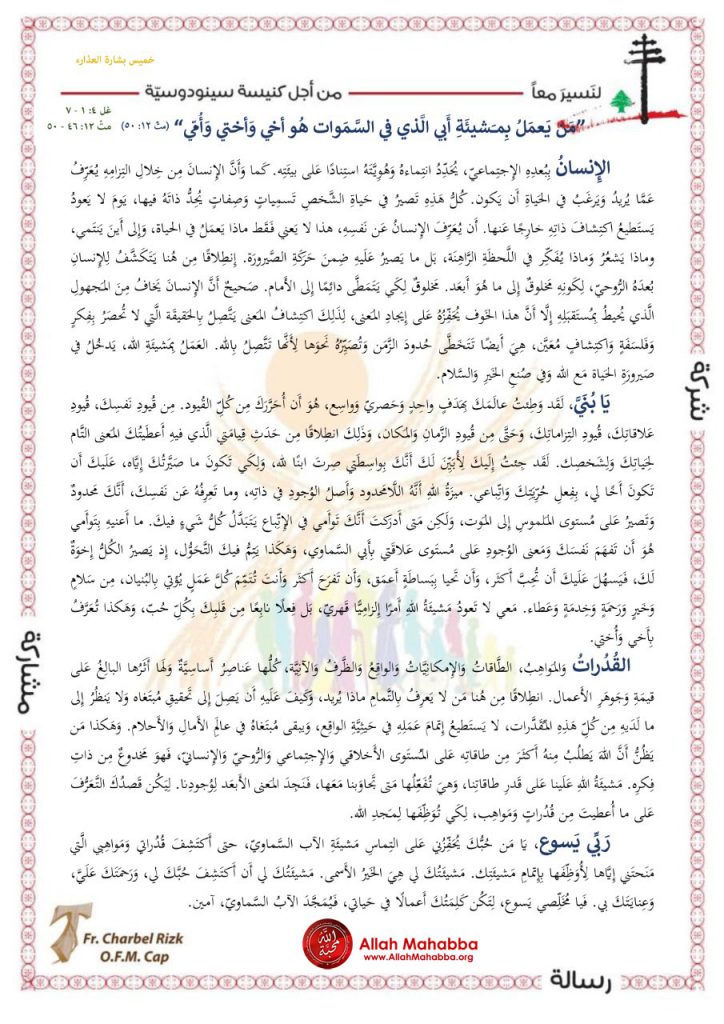 خميس بشارة العذراء
لنَسيرَ معاً
من أجل كنيسة سينودوسيّة
غل ٤: ١ - ٧
متّ ١٢: ٤٦ - ٥٠
”مَنْ يَعمَلُ بِمَشيئَةِ أَبي الَّذي في السَّمَوات هُو أخي وَأختي وَأُمّي“ (متّ ١٢: ٥٠)
الإنسانُ بِبُعدِهِ الإجتِماعيّ، يُحَدِّدُ انتِماءَهُ وَهُوِيَّتَهُ استِنادًا عَلى بيئَتِه. كَما وَأَنَّ الإنسانَ مِن خِلالِ التِزامِهِ يُعَرِّفُ
عَمَّا يُريدُ وَيَرغَبُ في الحَياةِ أَن يَكون. كُلُّ هَذِهِ تَصيرُ في حَياةِ الشَّخصِ تَسمياتٍ وَصِفاتٍ يَجُدُّ ذاتَهُ فيها، يَومَ لا يَعودُ
يَستَطيعُ اكتِشافَ ذاتِهِ خارِجًا عَنها. أَن يُعَرِّفَ الإنسانُ عَن نَفسِهِ، هذا لا يَعني فَقَط ماذا يَعمَلُ في الحياة، وَإِلى أَينَ يَنتَمي،
وماذا يَشعُرُ وَماذا يُفَكِّر في اللَّحظَةِ الرَّاهِنَة، بَل ما يَصيرُ عَلَيهِ ضِمنَ حَرَكَةِ الصَّيرورَة. إنطِلاقًا مِن هُنا يَتَكَشَّفُ لِلإنسانِ
بُعدَهُ الرُّوحيّ، لِكَونِهِ مَخلوقٌ إِلى ما هُوَ أَبعَد. مَخلوقٌ لِكَي يَتَمَطَّى دائِمًا إِلى الأَمام. صَحيحٌ أَنَّ الإنسانَ يَخافُ مِنَ المَجهولِ
الَّذي يُحيطُ بِمُستَقبَلِهِ إِلَّا أَنَّ هذا الخَوفَ يُحَفِّزُهُ عَلى إيجادِ المَعنى، لِذَلِكَ اكتِشافُ المَعنى يَتَّصِلُ بِالحَقيقَةِ الَّتي لا تُحصَرُ بِفِكرٍ
وَفَلسَفَةٍ وَاكتِشافٍ مُعَيَّن، هِيَ أَيضًا تَتَخَطَّى حُدودَ الزَّمَن وَتُصَيِّرُهُ نَحوَها لِأَنَّها تَتَّصِلُ بِالله. العَمَلُ بِمَشيئَةِ الله، يَدخُلُ في
صَيرورَةِ الحَياة مَعَ الله وَفي صُنعِ الخَيرِ وَالسَّلام.
يَا بُنَيَّ، لَقَد وَطِئتُ عالَمَكَ بِهَدَفٍ واحِدٍ وَحَصريّ وَواسِع، هُوَ أَن أُحَرِّرَكَ مِن كُلِّ القُيود. مِن قُيودِ نَفسِكَ، قُيودِ
عَلاقاتِكَ، قُيودِ التِزاماتِكَ، وَحَتَّى مِن قُيودِ الزَّمانِ وَالمَكان، وَذَلِكَ انطِلاقًا مِن حَدَثِ قِيامَتي الَّذي فيهِ أَعطَيتُكَ المَعنى التَّام
لِحَياتِكَ وَلِشَخصِك. لَقَد جِئتُ إِلَيكَ لِأُبَيِّنَ لَكَ أَنَّكَ بِواسِطَتي صِرتَ ابنًا لله، وَلِكَي تَكونَ ما صَيَّرتُكَ إِيَّاه، عَلَيكَ أَن
تَكونَ أَخًا لي، بِفِعلِ حُرِّيَّتِكَ وَاتِّباعي. ميزَةُ اللهِ أَنَّهُ اللَّامَحدود وَأَصلُ الوُجودِ في ذاتِه، وما تَعرِفُهُ عَن نَفسِكَ، أَنَّكَ مَحدودٌ
وَتَصيرُ عَلى مُستَوى المَلموسِ إِلى المَوت، وَلَكِن مَتى أَدرَكتَ أَنَّكَ تَوأَمي في الإتِّباع يَتَبَدَّلُ كُلُّ شَيءٍ فيكَ. ما أَعنيهِ بِتَوأَمي
هُوَ أَن تَفهَمَ نَفسَكَ وَمَعنى الوُجودِ عَلى مُستَوى عَلاقَتي بِأَبي السَّماوي، وَهَكَذا يَتِمُّ فيكَ التَّحَوُّل، إِذ يَصيرُ الكُلُّ إِخوَةٌ
لَكَ، فَيَسهُلَ عَلَيكَ أَن تُحِبَّ أَكثَر، وَأَن تَحيا بِبَساطَةٍ أَعمَق، وَأَن تَفرَحَ أَكثَر وَأَنتَ تُتَمِّمَ كُلَّ عَمَلٍ يُؤتي بِالبُنيان، مِن سَلامٍ
وَخَيرٍ وَرَحمَةٍ وَخِدمَةٍ وَعَطاء. مَعي لا تَعودُ مَشيئَةُ اللهِ أَمرًا إِلزاميًّا قَهريّ، بَل فِعلًا نابِعًا مِن قَلبِكَ بِكُلِّ حُبّ، وَهَكَذا تُعَرَّفُ
بِأَخي وَأُختي.
القُدُراتُ وَالمَواهِبُ، الطَّاقاتُ وَالإمكانِيَّاتُ وَالواقِعُ وَالظَّرفُ وَالآنِيَّة، كُلُّها عَناصِرُ أَساسِيَّةٌ وَلَها أَثَرُها البالِغُ عَلى
قيمَةِ وَجَوهَرِ الأَعمال. انطِلاقًا مِن هُنا مَن لا يَعرِفُ بِالتَّمامِ ماذا يُريد، وَكَيفَ عَلَيهِ أَن يَصِلَ إِلى تَحقيقِ مُبتَغاه وَلا يَنظُرُ إِلى
ما لَدَيهِ مِن كُلِّ هَذِهِ المُقَدَّرات، لا يَستَطيعُ إِتمامَ عَمَلِهِ في حَيثِيَّةِ الواقِع، وَيَبقى مُبتَغاهُ في عالَمِ الأَمالِ وَالأَحلام. وَهَكذا مَن
يَظُنُّ أَنَّ اللهَ يَطلُبُ مِنهُ أَكثَرَ مِن طاقاتِهِ عَلى المُستَوى الأَخلاقي وَالإجتِماعي وَالرُّوحيّ وَالإنسانيّ، فَهوَ مَخدوعٌ مِن ذاتِ
فِكرِه. مَشيئَةُ اللهِ عَلَينا عَلى قَدرِ طاقاتِنا، وَهيَ تُفَعِّلُها مَتى تَجاوَبنا مَعَها، فَنَجِدَ المَعنى الأَبعَد لِوُجودِنا. لِيَكُن قَصدُكَ التَّعَرُّفَ
عَلى ما أُعطيتَ مِن قُدُراتٍ وَمَواهِب، لِكَي تُوَظِّفَها لِمَجدِ الله.
رَبِّي يَسوع، يا مَن حُبُّكَ يُحَفِّزُني عَلى التِماسِ مَشيئَةِ الآب السَّماويّ، حتى أَكتَشِفَ قُدُراتي وَمَواهِبي الَّتي
مَنَحتَني إِيَّاها لِأُوَظِّفَها بِإِتمامِ مَشيئَتِك. مَشيئَتُكَ لي هِيَ الخَيرُ الأَسمى. مَشيئَتُكَ لي أَن أَكتَشِفَ حُبَّكَ لي، وَرَحمَتَكَ عَلَيَّ،
وَعِنايَتَكَ بي. فَيا مُخَلِّصي يَسوع، لِتَكُن كَلِمَتُكَ أَعمالًا في حَياتي، فَيُمَجَّدَ الآبُ السَّماويّ، آمين.
شركة
مشاركة
رسالة
Fr. Charbel Rizk
O.F.M. Cap
الله محبّة
Allah Mahabba
www.AllahMahabba.org